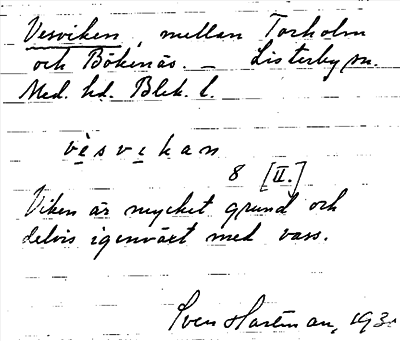 Vesviken, mellan Torholm
och Bökenäs. – Listerby sn.
Med. hd. Blek. l.
vèsvikan
8 [II.]
Viken är mycket grund och
delvis igenväxt med vass.
Sven Hartman,